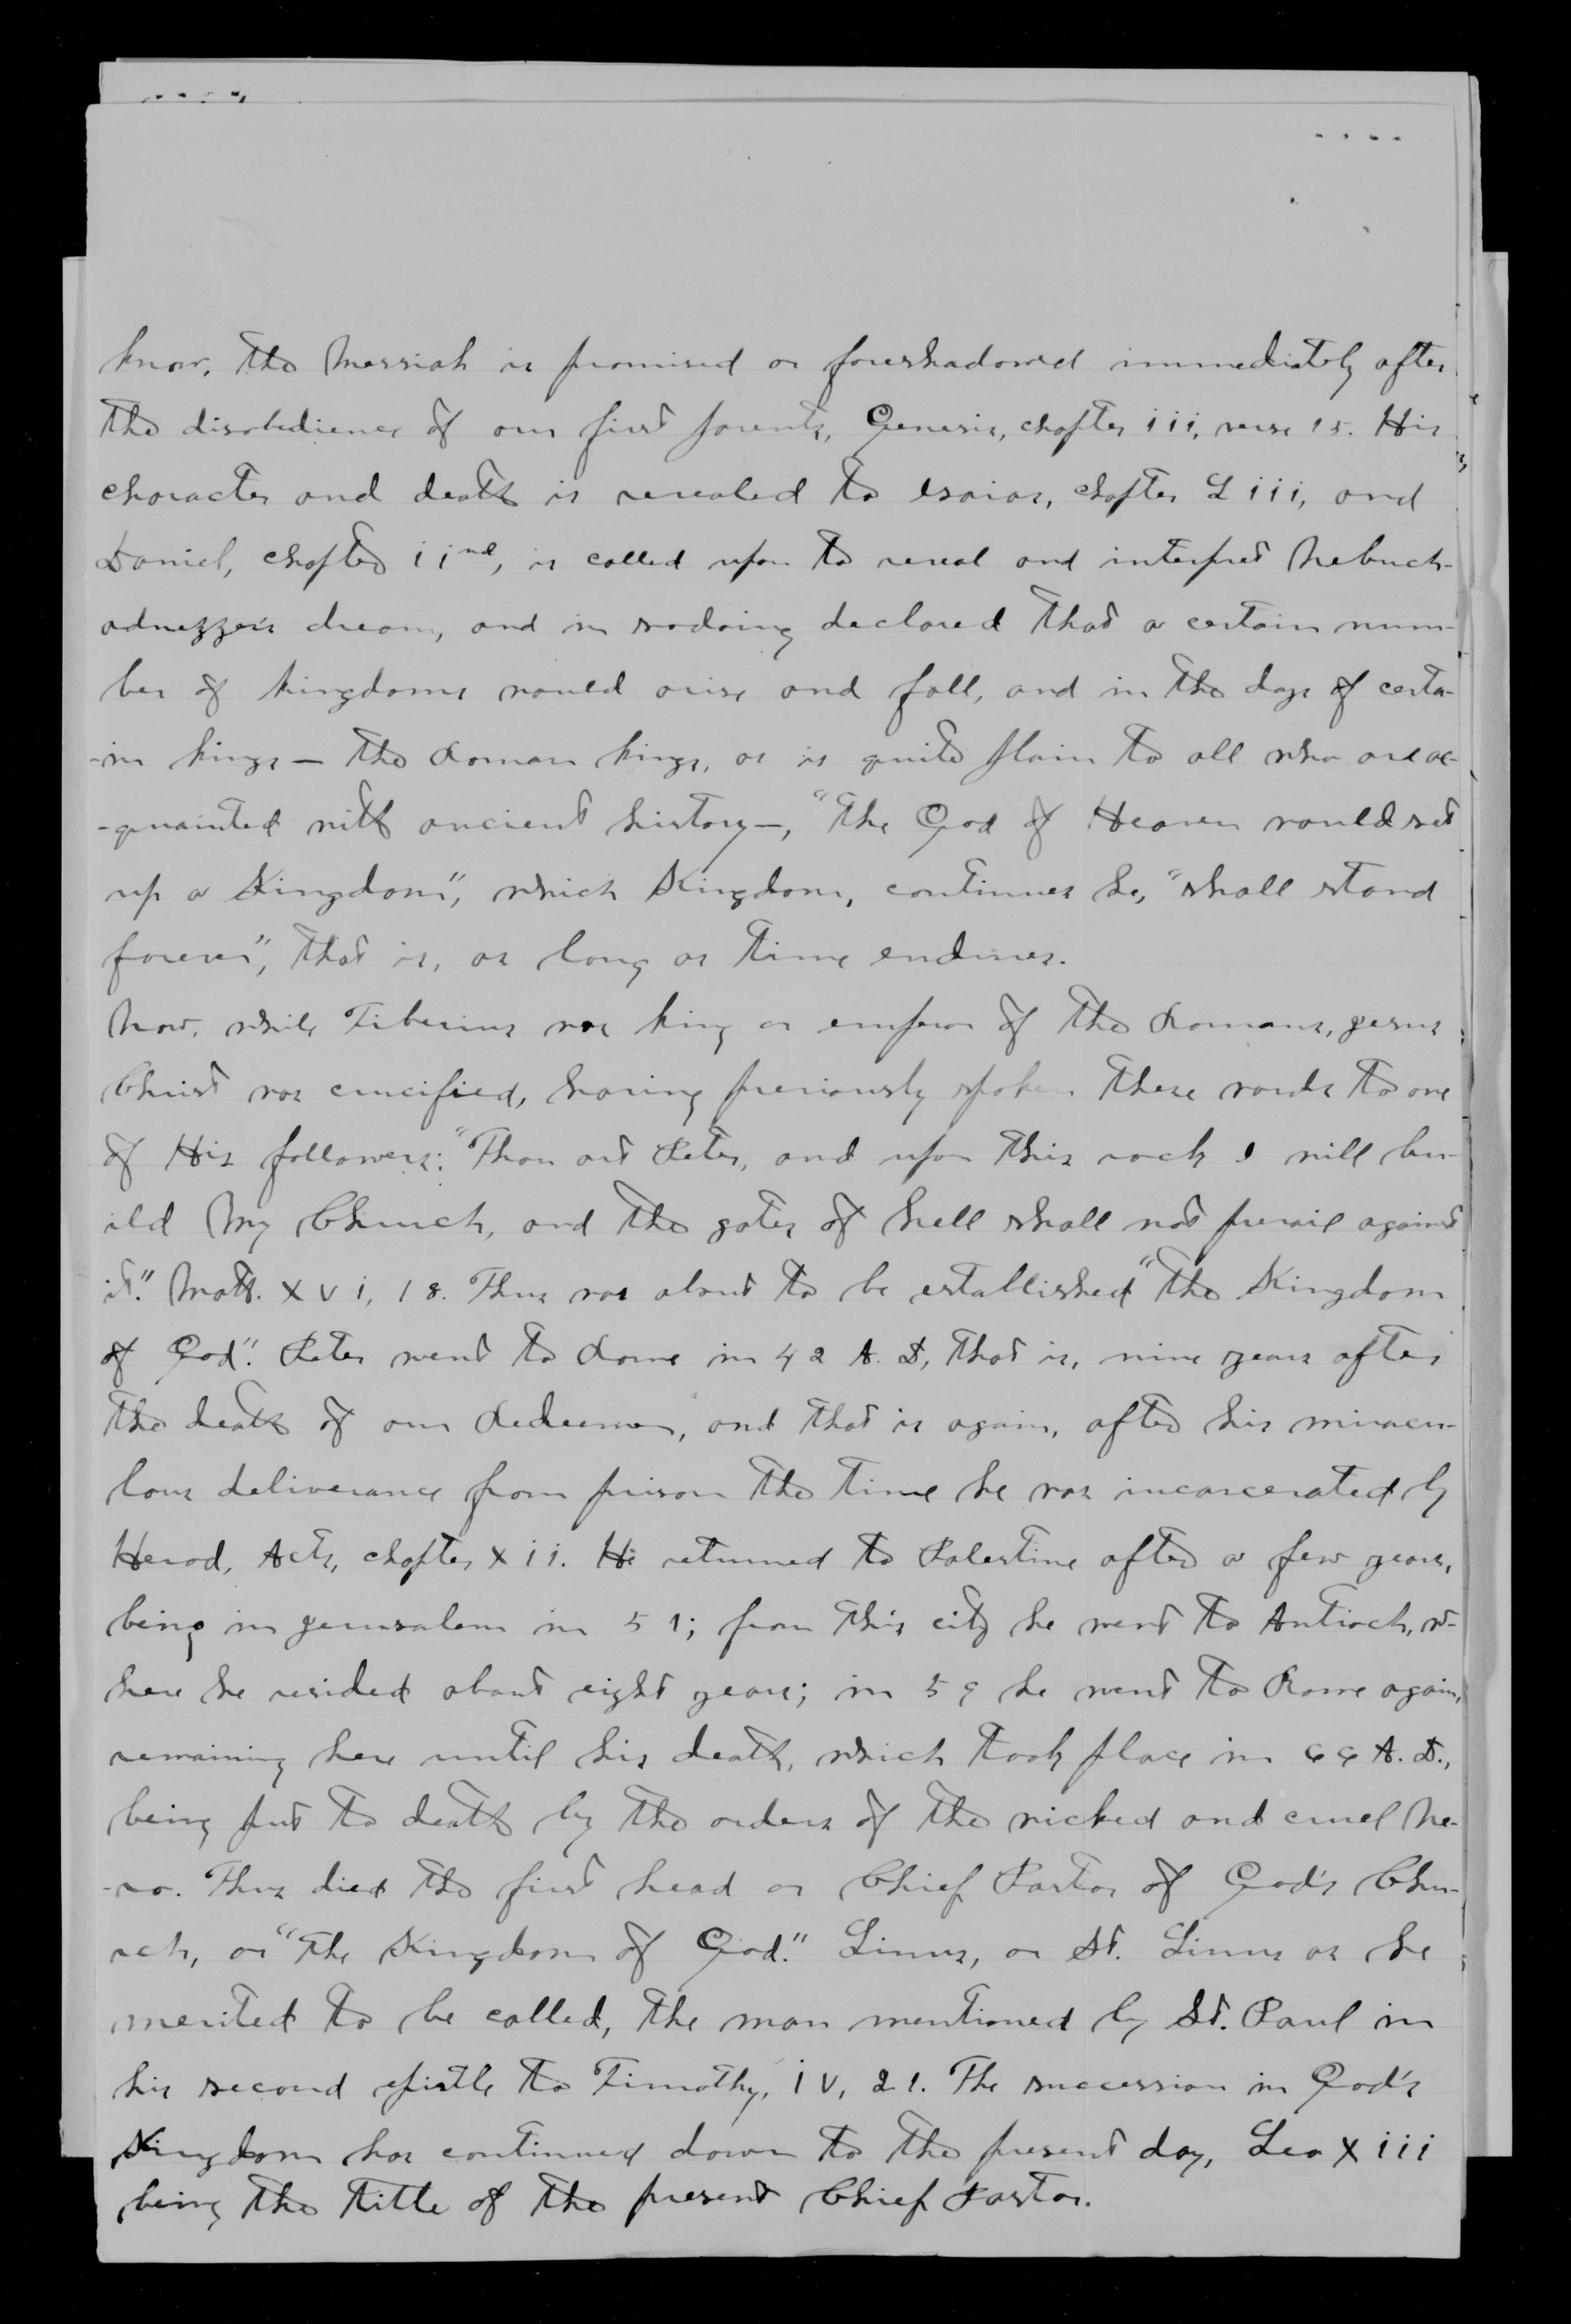 know, the Messiah is promised or foreshadowed immediately after
the disobedience of our first parents, Genesis, chapter iii, verse 15. His
character and death is revealed to Isaias, chapter Liii, and
Daniel, chapter iind, is called upon to reveal and interpret Nebuch-
adnezzer's dream, and in sodoing declared that a certain num-
ber of kingdoms would arise and fall, and in the days of certa-
-in kings — the Roman kings, as is quite plain to all who are ac-
-quainted with ancient history —, "the God of Heaven would set
up a Kingdom", which Kingdom, continues he, "shall stand
forever", that is, as long as time endures.
Now, while Tiberius was king or emperor of the Romans, Jesus
Christ was crucified, having previously spoken these words to one
of His followers: "Thou art Peter, and upon this rock I will bu-
ild My Church, and the gates of hell shall not prevail against
it." Matt. xvi, 18. Thus was about to be established "the Kingdom
of God". Peter went to Rome in 42 A. D, that is, nine years after
the death of our Redeemer, and that is again, after his miracu-
lous deliverance from prison the time he was incarcerated by
Herod, Acts, chapter xii. He returned to Palestine after a few years,
being in Jerusalem in 51; from this city he went to Antioch, w-
here he resided about eight years; in 59 he went to Rome again,
remaining here until his death, which took place in 66 A. D.,
being put to death by the orders of the wicked and cruel Ne-
-ro. Thus died the first head or Chief Pastor of God's Chu-
rch, or "the Kingdom of God." Linus, or St. Linus as he
merited to be called, the man mentioned by St. Paul in
his second epistle to Timothy, iv, 21. The succession in God's
Kingdom has continued down to the present day, Leo xiii
being the title of the present Chief Pastor.